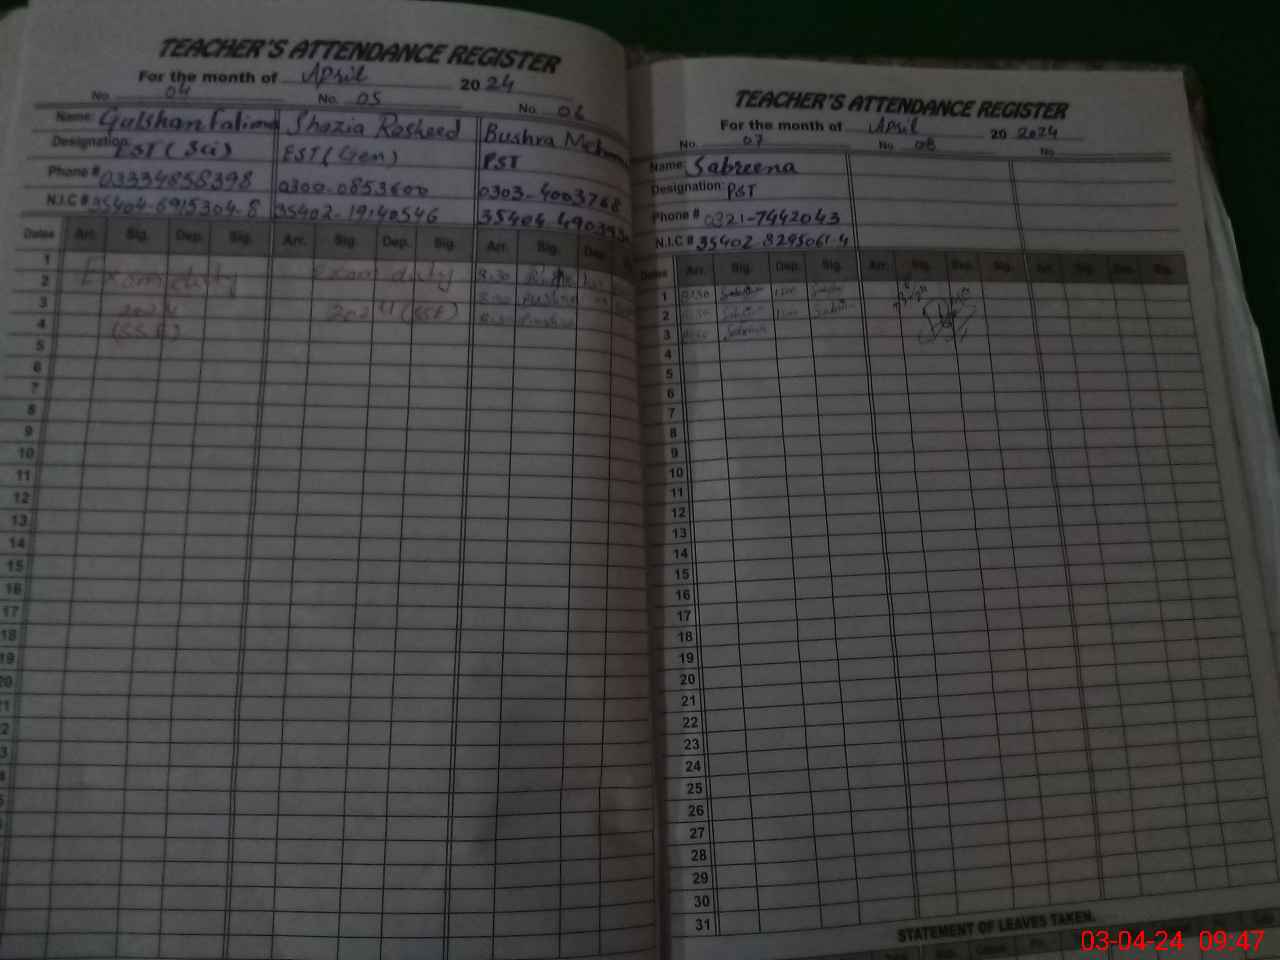 TEACHER'S ATTENDANCE REGISTER
For the month of April 2024
No. 04 No. 05 No. 06
Name: Gulshan Fatima Shazia Rasheed Bushra
Designation: EST (Sci) EST (Gen) PST
Phone # 03334858398 0300-0853600 0303-4003768
N.I.C # 35404-6915304-8 35402-19140546 35404-490393
Dates Arr. Sig. Dep. Sig. Arr. Sig. Dep. Sig. Arr. Sig. Dep.
1 Exam duty Exam duty 8:30 Bushra
2 8:30 Bushra
3 2024 2024 (SSE) 8:30 Bushra
4 (SSE)
5
6
7
8
9
10
11
12
13
14
15
16
17
18
19
20
TEACHER'S ATTENDANCE REGISTER
For the month of April 20 2024
No. 07 No 08 No
Name: Sabreena
Designation: PST
Phone # 0321-7442043
N.I.C # 35402-8295061-4
Dates Arr. Sig. Dep. Sig. Arr. Sig. Dep. Sig. Arr. Sig. Dep. Sig.
1 8:30
2 8:30
3
4
5
6
7
8
9
10
11
12
13
14
15
16
17
18
19
20
21
22
23
24
25
26
27
28
29
30
31
STATEMENT OF LEAVES TAKEN.
03-04-24 09:47